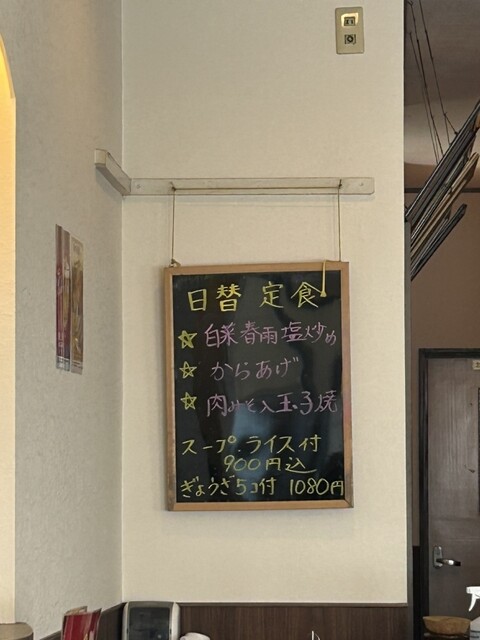 日替 定食
☆ 白菜春雨塩炒め
☆ からあげ
☆ 肉みそ入玉子焼
スープ.ライス付
900円込
ぎょうざ5コ付 1080円